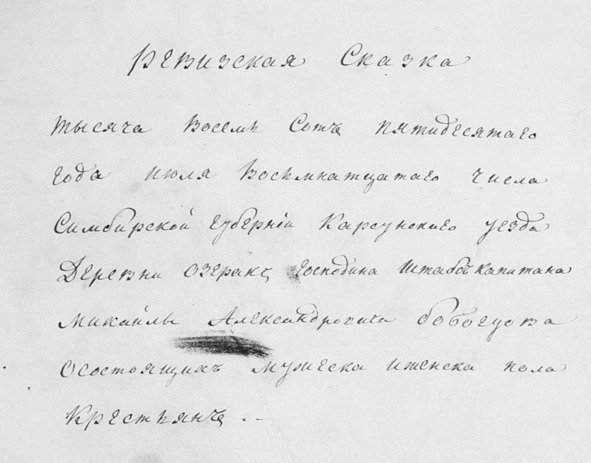 Ревизская Сказка
тысяча восемь Сотъ пятидесятаго
года июля Восемнатцатаго числа
Симбирской Губерніи Карсунского уезда
Деревни озеракъ Господина Штабскапитана
Михайлы Александровича
Осостоящихъ Мужеска иженска пола
Крестьянъ . –